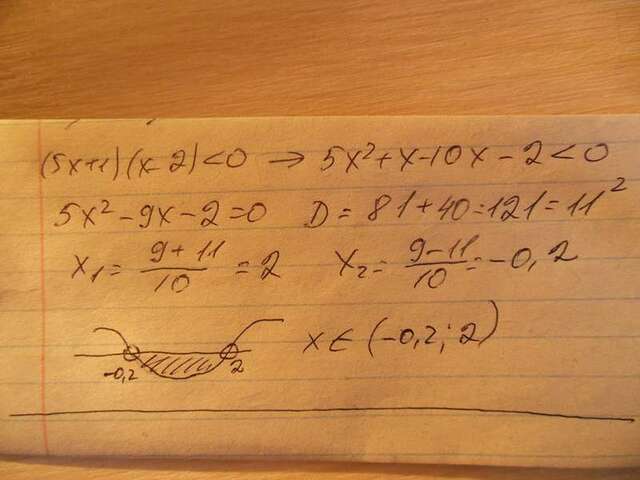 (5x+1)(x-2)<0 → 5x²+x-10x-2<0
5x²-9x-2=0 D=81+40=121=11²
x₁=9+11/10=2 x₂=9-11/10=-0,2
-0,2 2 x∈(-0,2;2)